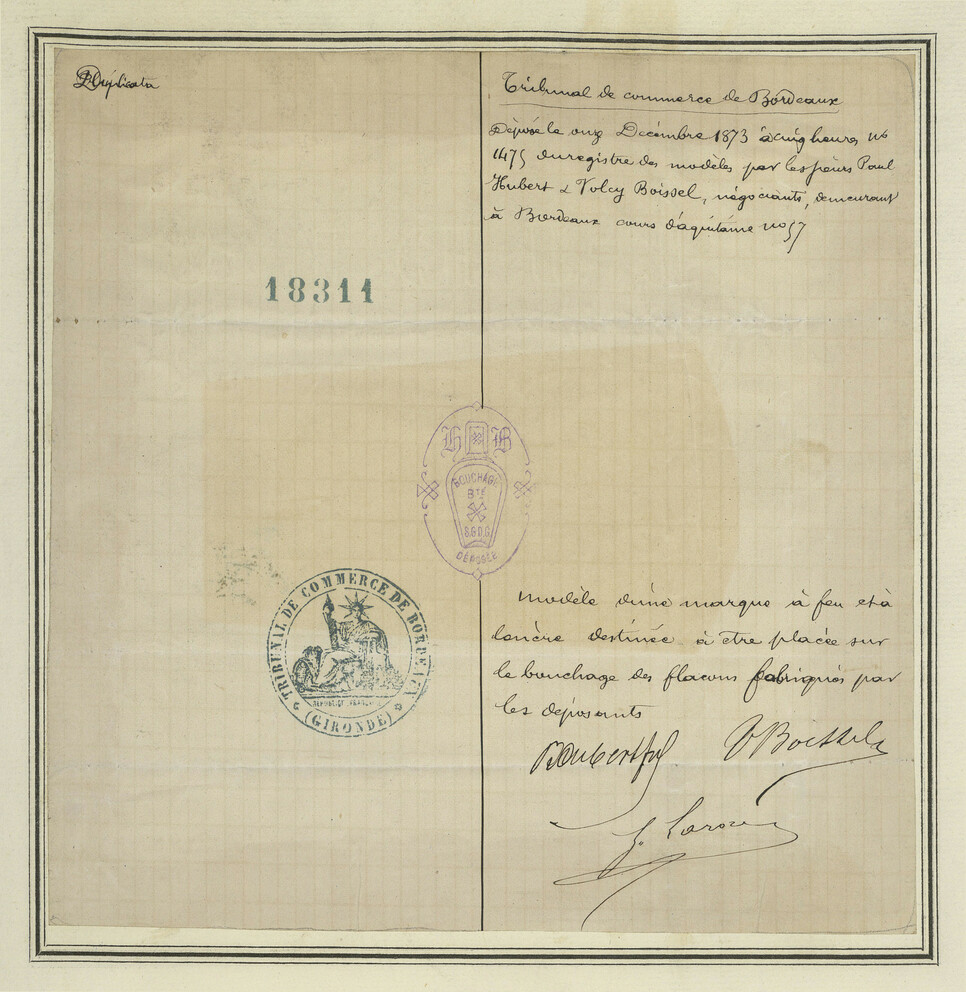 Duplicata
Tribunal de commerce de Bordeaux
Déposé le onze Décembre 1873 à cinq heures no
1475 du registre des modèles par les sieurs Paul
Hubert & Volcy Boissel, négociants, demeurant
à Bordeaux cours d'aquitaine no 57
18311
H B
BOUCHAGE
BTÉ
S.G.D.G.
DÉPOSÉE
TRIBUNAL DE COMMERCE DE BORDEAUX
REPUBLIQUE FRANÇAISE
(GIRONDE)
modèle d'une marque à feu et à
l'encre destinée à etre placée sur
le bouchage des flacons fabriqués par
les déposants
VBoissel